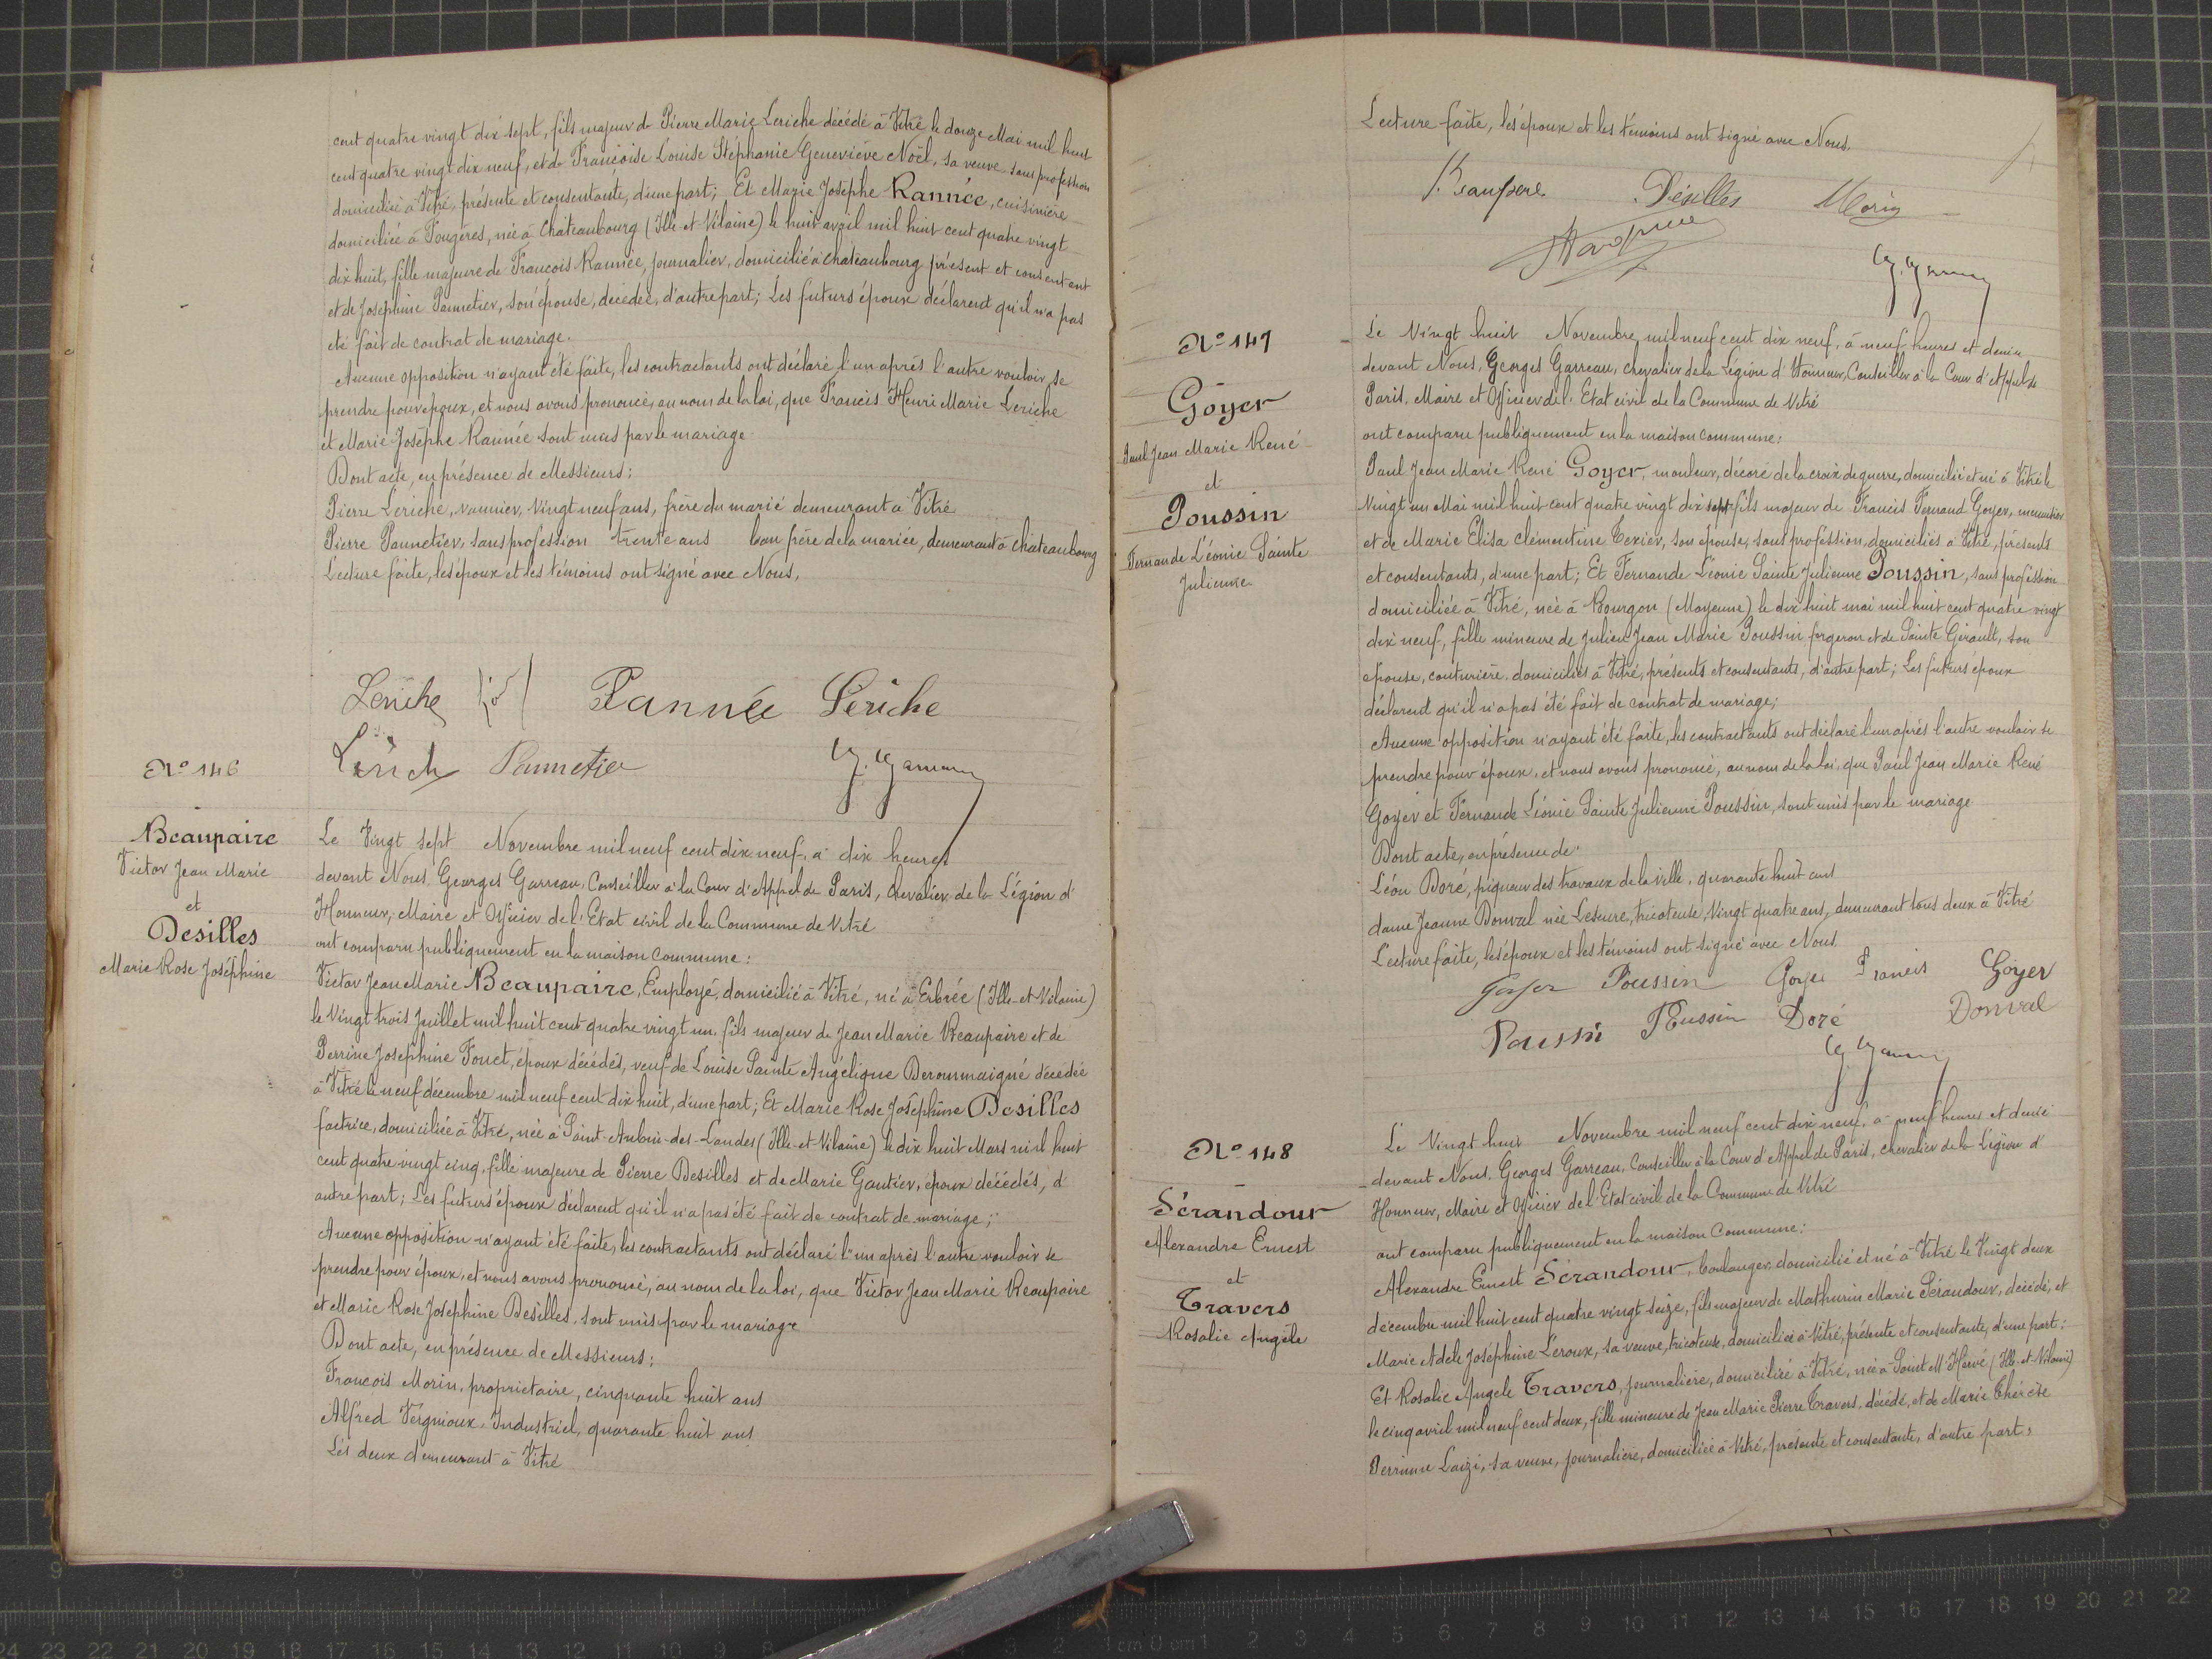 cent quatre vingt dix sept, fils majeur de Pierre Marie Leriche décédé à Vitré le douze Mai mil huit
cent quatre vingt dix neuf, et de Françoise Louise Stéphanie Geneviève Noël, sa veuve, sans profession
domiciliée à Vitré, présente et consentante, d'une part; Et Marie Josèphe Rannée, cuisinière
domiciliée à Fougères, née à Chateaubourg (Ille-et-Vilaine) le huit avril mil huit cent quatre vingt
dix huit, fille majeure de François Rannée, journalier, domicilié à Chateaubourg présent et consentant
et de Joséphine Pannetier, son épouse, décédée, d'autre part; Les futurs époux déclarent qu'il n'a pas
été fait de contrat de mariage.
Aucune opposition n'ayant été faite, les contractants ont déclaré l'un après l'autre vouloir se
prendre pour époux, et nous avons prononcé, au nom de la loi, que Francis Henri Marie Leriche
et Marie Josèphe Rannée sont unis par le mariage
Dont acte, en présence de Messieurs:
Pierre Leriche, vannier, vingt neuf ans, frère du marié demeurant à Vitré
Pierre Pannetier, sans profession trente ans beau frère de la mariée, demeurant à Chateaubourg
Lecture faite, les époux et les témoins ont signé avec Nous,
Leriche Rannée Leriche
Lerich Pannetier G. Garreau
N° 146
Beaupaire
Victor Jean Marie
et
Desilles
Marie Rose Joséphine
Le Vingt sept Novembre mil neuf cent dix neuf, à dix heures
devant Nous, Georges Garreau, Conseiller à la Cour d'Appel de Paris, chevalier de la Légion d'
Honneur, Maire et Officier de l'Etat civil de la Commune de Vitré
ont comparu publiquement en la maison commune:
Victor Jean Marie Beaupaire, Employé, domicilié à Vitré, né à Erbrée (Ille-et-Vilaine)
le Vingt trois Juillet mil huit cent quatre vingt un, fils majeur de Jean Marie Beaupaire et de
Perrine Joséphine Fouet, époux décédés, veuf de Louise Sainte Angélique Deroumaigné décédée
à Vitré le neuf décembre mil neuf cent dix huit, d'une part; Et Marie Rose Joséphine Desilles
factrice, domiciliée à Vitré, née à Saint-Aubin-des-Landes (Ille-et-Vilaine) le dix huit Mars mil huit
cent quatre vingt cinq, fille majeure de Pierre Desilles et de Marie Gautier, époux décédés, d'
autre part; Les futurs époux déclarent qu'il n'a pas été fait de contrat de mariage;
Aucune opposition n'ayant été faite, les contractants ont déclaré l'un après l'autre vouloir se
prendre pour époux, et nous avons prononcé, au nom de la loi, que Victor Jean Marie Beaupaire
et Marie Rose Joséphine Desilles, sont unis par le mariage
Dont acte, en présence de Messieurs:
François Morin, propriétaire, cinquante huit ans
Alfred Vergnioux, Industriel, quarante huit ans
Les deux demeurant à Vitré
Lecture faite, les époux et les témoins ont signé avec Nous.
Beaupere Désilles Morin
G. Garreau
N° 147
Goyer
Paul Jean Marie René
et
Poussin
Fernande Léonie Sainte
Julienne
Le Vingt huit Novembre mil neuf cent dix neuf, à neuf heures et demie
devant Nous, Georges Garreau, chevalier de la Légion d'Honneur, Conseiller à la Cour d'Appel de
Paris, Maire et Officier de l'Etat civil de la Commune de Vitré
ont comparu publiquement en la maison commune:
Paul Jean Marie René Goyer, mouleur, décoré de la croix de guerre, domicilié et né à Vitré le
Vingt un Mai mil huit cent quatre vingt dix sept fils majeur de Francis Fernand Goyer, menuisier
et de Marie Elisa Clémentine Texier, son épouse, sans profession, domiciliés à Vitré, présents
et consentants, d'une part; Et Fernande Léonie Sainte Julienne Poussin, sans profession
domiciliée à Vitré, née à Bourgon (Mayenne) le dix huit mai mil huit cent quatre vingt
dix neuf, fille mineure de Julien Jean Marie Poussin forgeron et de Sainte Gérault, son
épouse, couturière, domiciliés à Vitré, présents et consentants, d'autre part; Les futurs époux
déclarent qu'il n'a pas été fait de contrat de mariage;
Aucune opposition n'ayant été faite, les contractants ont déclaré l'un après l'autre vouloir se
prendre pour époux, et nous avons prononcé, au nom de la loi, que Paul Jean Marie René
Goyer et Fernande Léonie Sainte Julienne Poussin, sont unis par le mariage
Dont acte, en présence de
Léon Doré, piqueur des travaux de la ville, quarante huit ans
dame Jeanne Donval née Lesure, tricoteuse, Vingt quatre ans, demeurant tous deux à Vitré
Lecture faite, les époux et les témoins ont signé avec Nous
Goyer Poussin Goyer Francis Goyer
Poussin Poussin Doré Donval
G. Garreau
N° 148
Sérandour
Alexandre Ernest
et
Travers
Rosalie Angèle
Le Vingt huit Novembre mil neuf cent dix neuf, à neuf heures et demie
devant Nous, Georges Garreau, Conseiller à la Cour d'Appel de Paris, chevalier de la Légion d'
Honneur, Maire et Officier de l'Etat civil de la Commune de Vitré
ont comparu publiquement en la maison commune:
Alexandre Ernest Sérandour, boulanger, domicilié et né à Vitré le Vingt deux
décembre mil huit cent quatre vingt seize, fils majeur de Mathurin Marie Sérandour, décédé, et
Marie Adèle Joséphine Leroux, sa veuve, tricoteuse, domiciliée à Vitré, présente et consentante, d'une part;
Et Rosalie Angèle Travers, journalière, domiciliée à Vitré, née à Saint M'Hervé (Ille-et-Vilaine)
le cinq avril mil neuf cent deux, fille mineure de Jean Marie Pierre Travers, décédé, et de Marie Thérèse
Perrine Laizi, sa veuve, journalière, domiciliée à Vitré, présente et consentante, d'autre part,